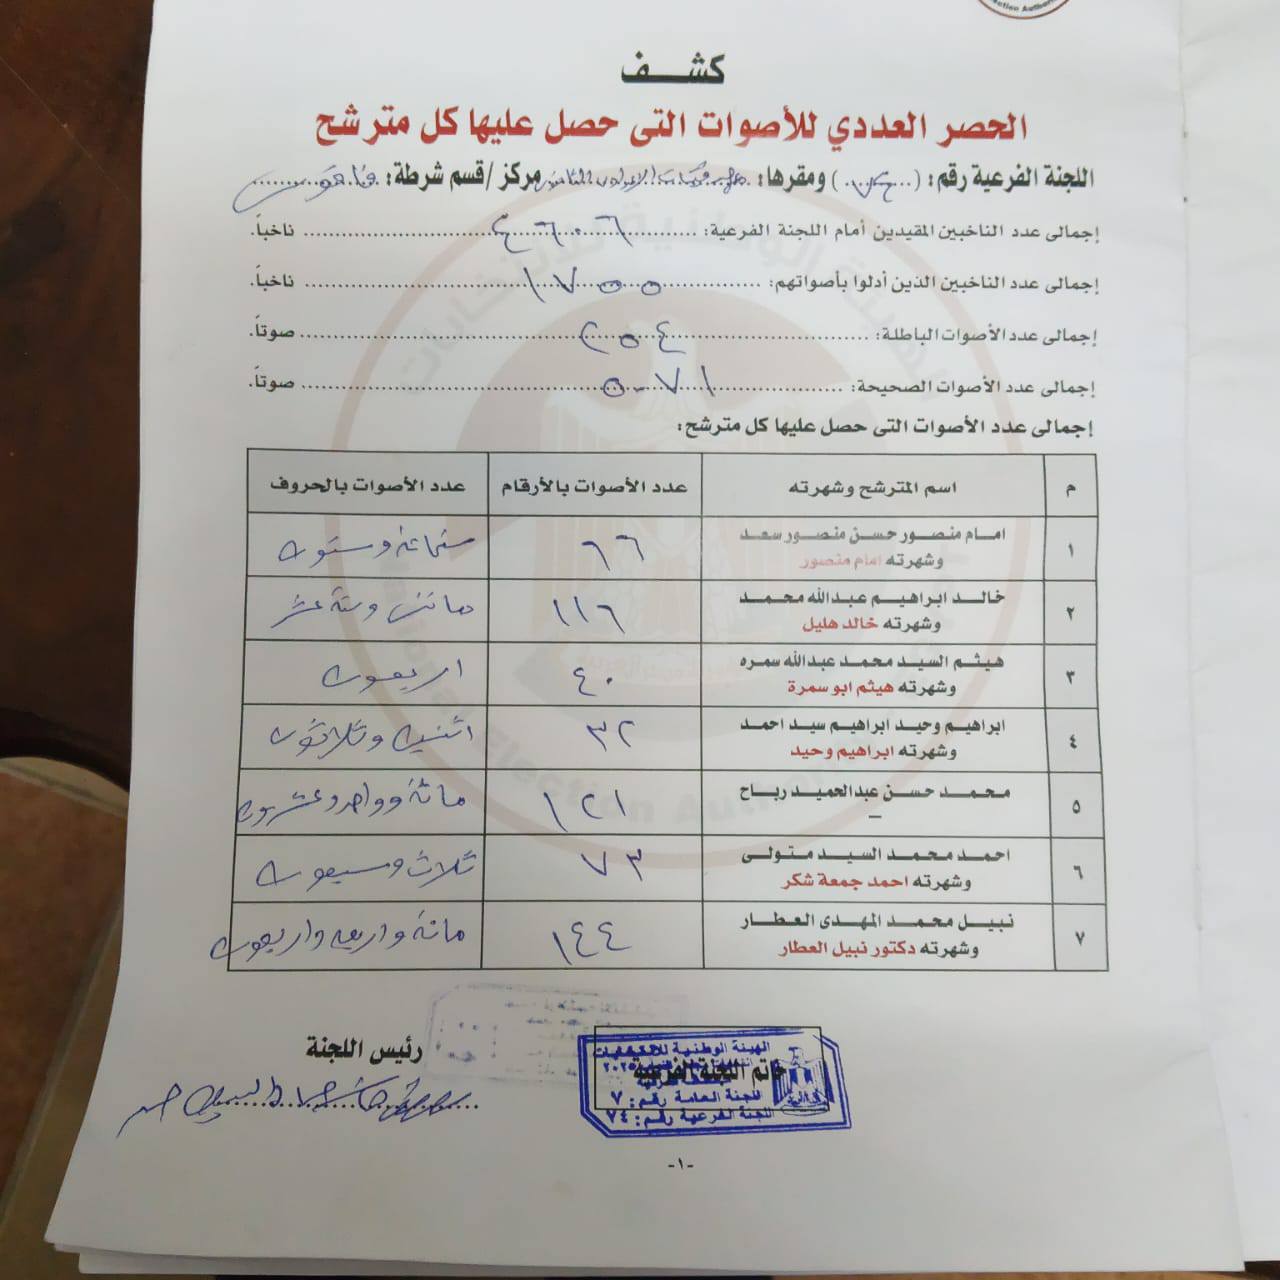 ction Autho
كشف
الحصر العددي للأصوات التى حصل عليها كل مترشح
اللجنة الفرعية رقم: ( ) ومقرها: مركز / قسم شرطة: فاقوس
إجمالى عدد الناخبين المقيدين أمام اللجنة الفرعية: ناخباً.
إجمالى عدد الناخبين الذين أدلوا بأصواتهم: ١٧٥٥ ناخباً.
إجمالى عدد الأصوات الباطلة: ٢٥٤ صوتاً.
إجمالى عدد الأصوات الصحيحة: صوتاً.
إجمالى عدد الأصوات التى حصل عليها كل مترشح:
م اسم المترشح وشهرته عدد الأصوات بالأرقام عدد الأصوات بالحروف
١ امام منصور حسن منصور سعد
وشهرته امام منصور ٦٦
٢ خالد ابراهيم عبدالله محمد
وشهرته خالد هليل ١١٦
٣ هيثم السيد محمد عبدالله سمره
وشهرته هيثم ابو سمرة ٤٠ اربعون
٤ ابراهيم وحيد ابراهيم سيد احمد
وشهرته ابراهيم وحيد ٣٢ اثنين وثلاثون
٥ محمد حسن عبدالحميد رباح
– ١٢١ مائة وواحد وعشرون
٦ احمد محمد السيد متولى
وشهرته احمد جمعة شكر ٧٣ ثلاث وسبعون
٧ نبيل محمد المهدى العطار
وشهرته دكتور نبيل العطار ١٤٤ مائة واربعه واربعون
رئيس اللجنة
خاتم اللجنة الفرعية
الهيئة الوطنية للانتخابات
اللجنة العامة رقم: ٧
اللجنة الفرعية رقم: ٧٤
-١-